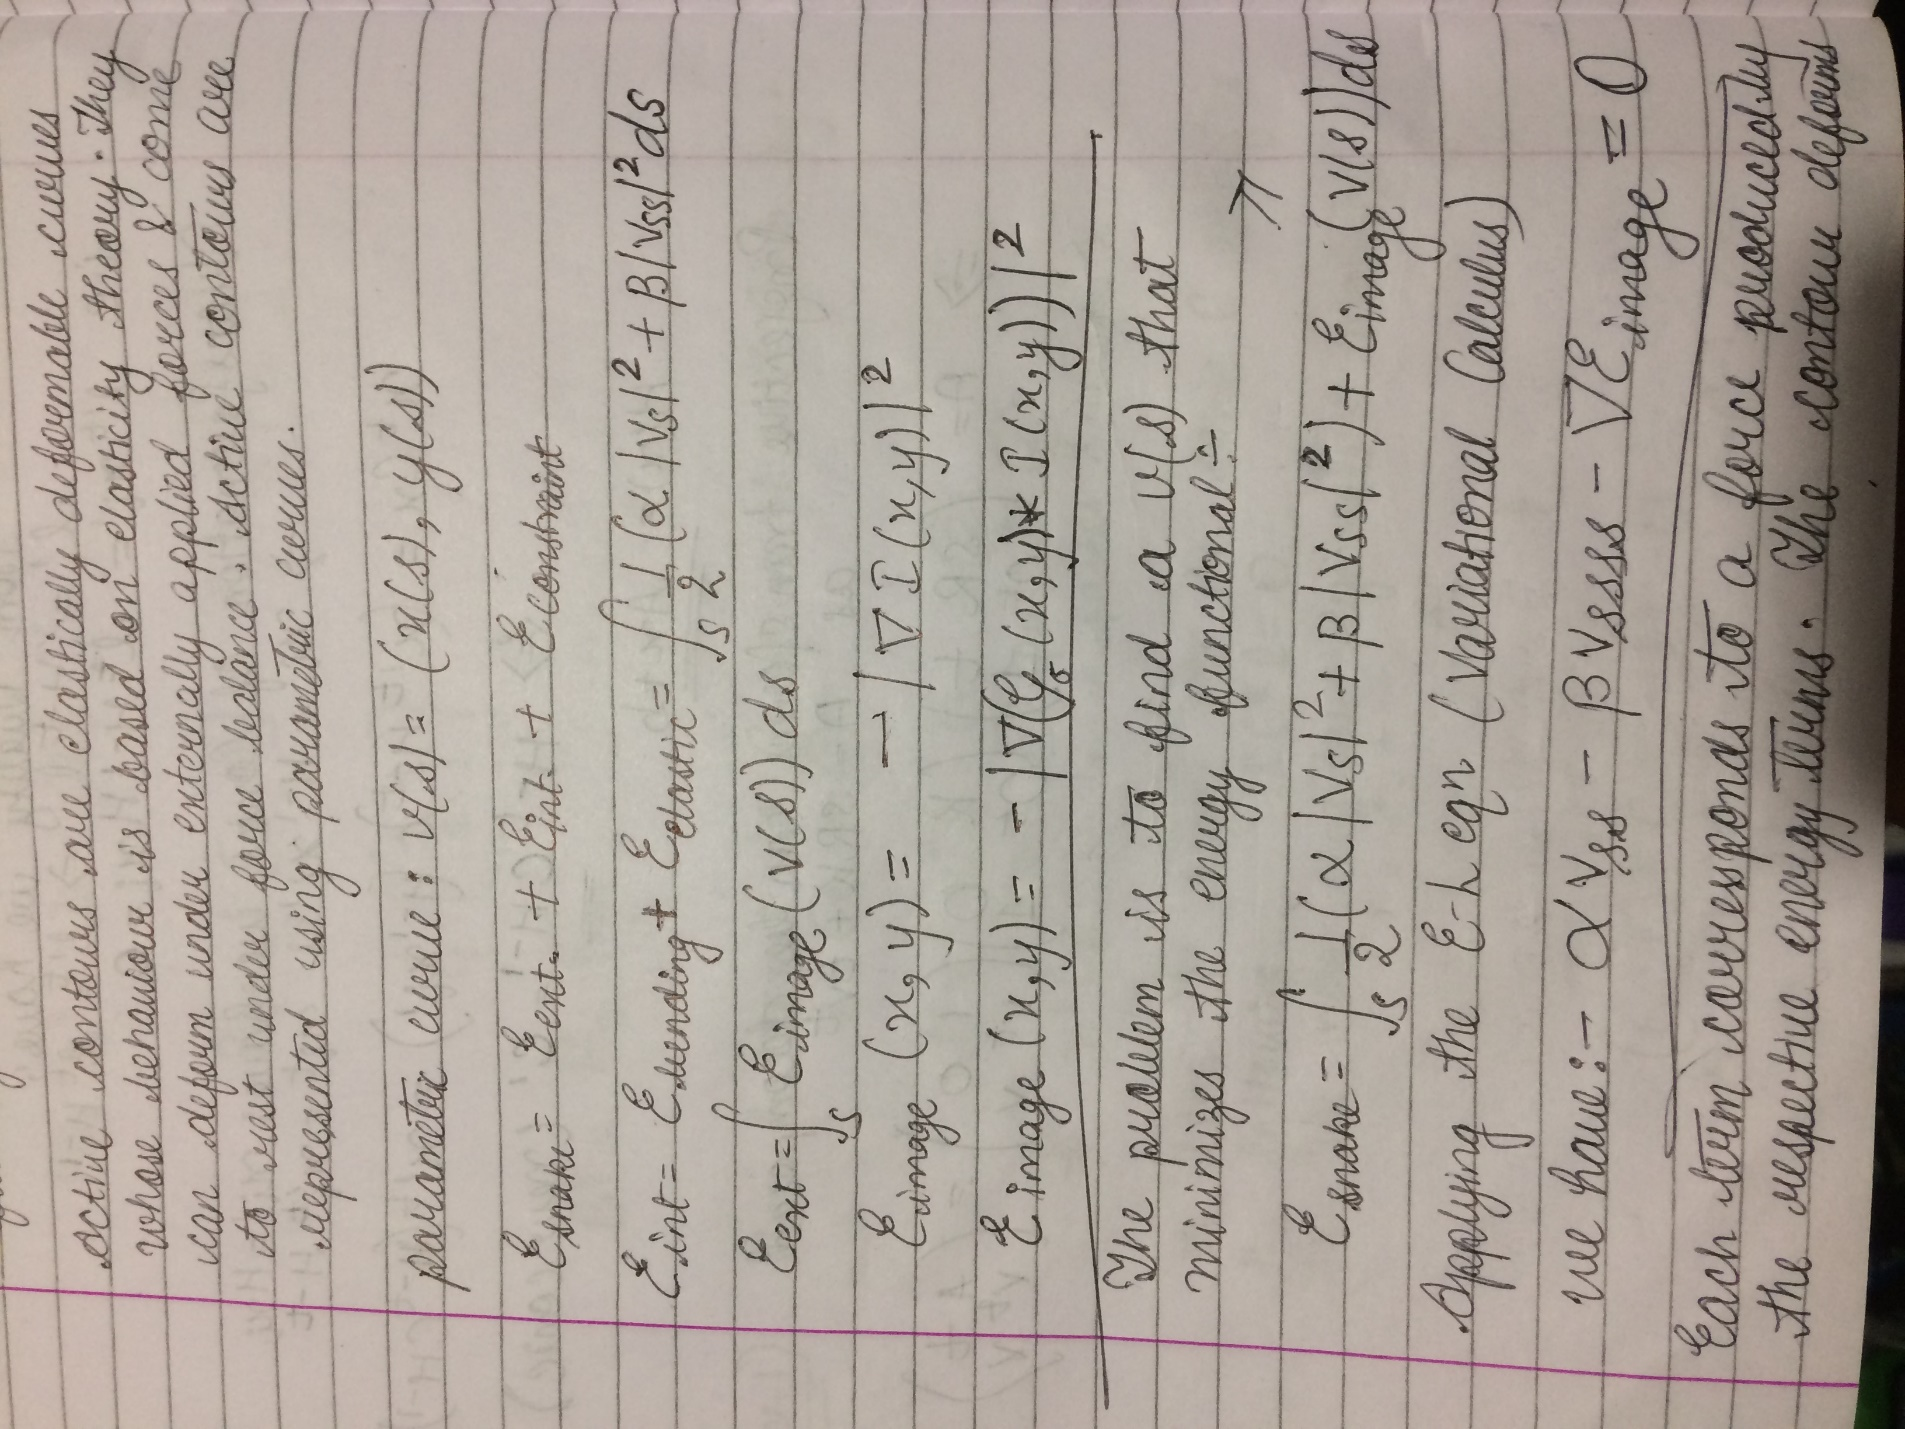 Active contours are elastically deformable curves
whose behaviour is based on elasticity theory. They
can deform under externally applied forces & come
to rest under force balance. Active contours are
represented using parametric curves.
parametric curve : v(s) = (x(s), y(s))
Esnake = Eext. + Eint. + Econstraint
Eint = Ebending + Eelastic = ∫s 1/2 (α |Vs|² + β |Vss|² ds
Eext = ∫s Eimage (V(s)) ds
Eimage (x, y) = - |∇ I (x, y)|²
Eimage (x, y) = - |∇(Gσ (x, y) * I (x, y))|²
The problem is to find a v(s) that
minimizes the energy functional :-
Esnake = ∫s 1/2 (α |Vs|² + β |Vss|²) + Eimage (V(s)) ds
Applying the E-L eqn (Variational Calculus)
we have :- α Vss - β Vssss - ∇Eimage = 0
Each term corresponds to a force produced by
the respective energy terms. The contour deforms